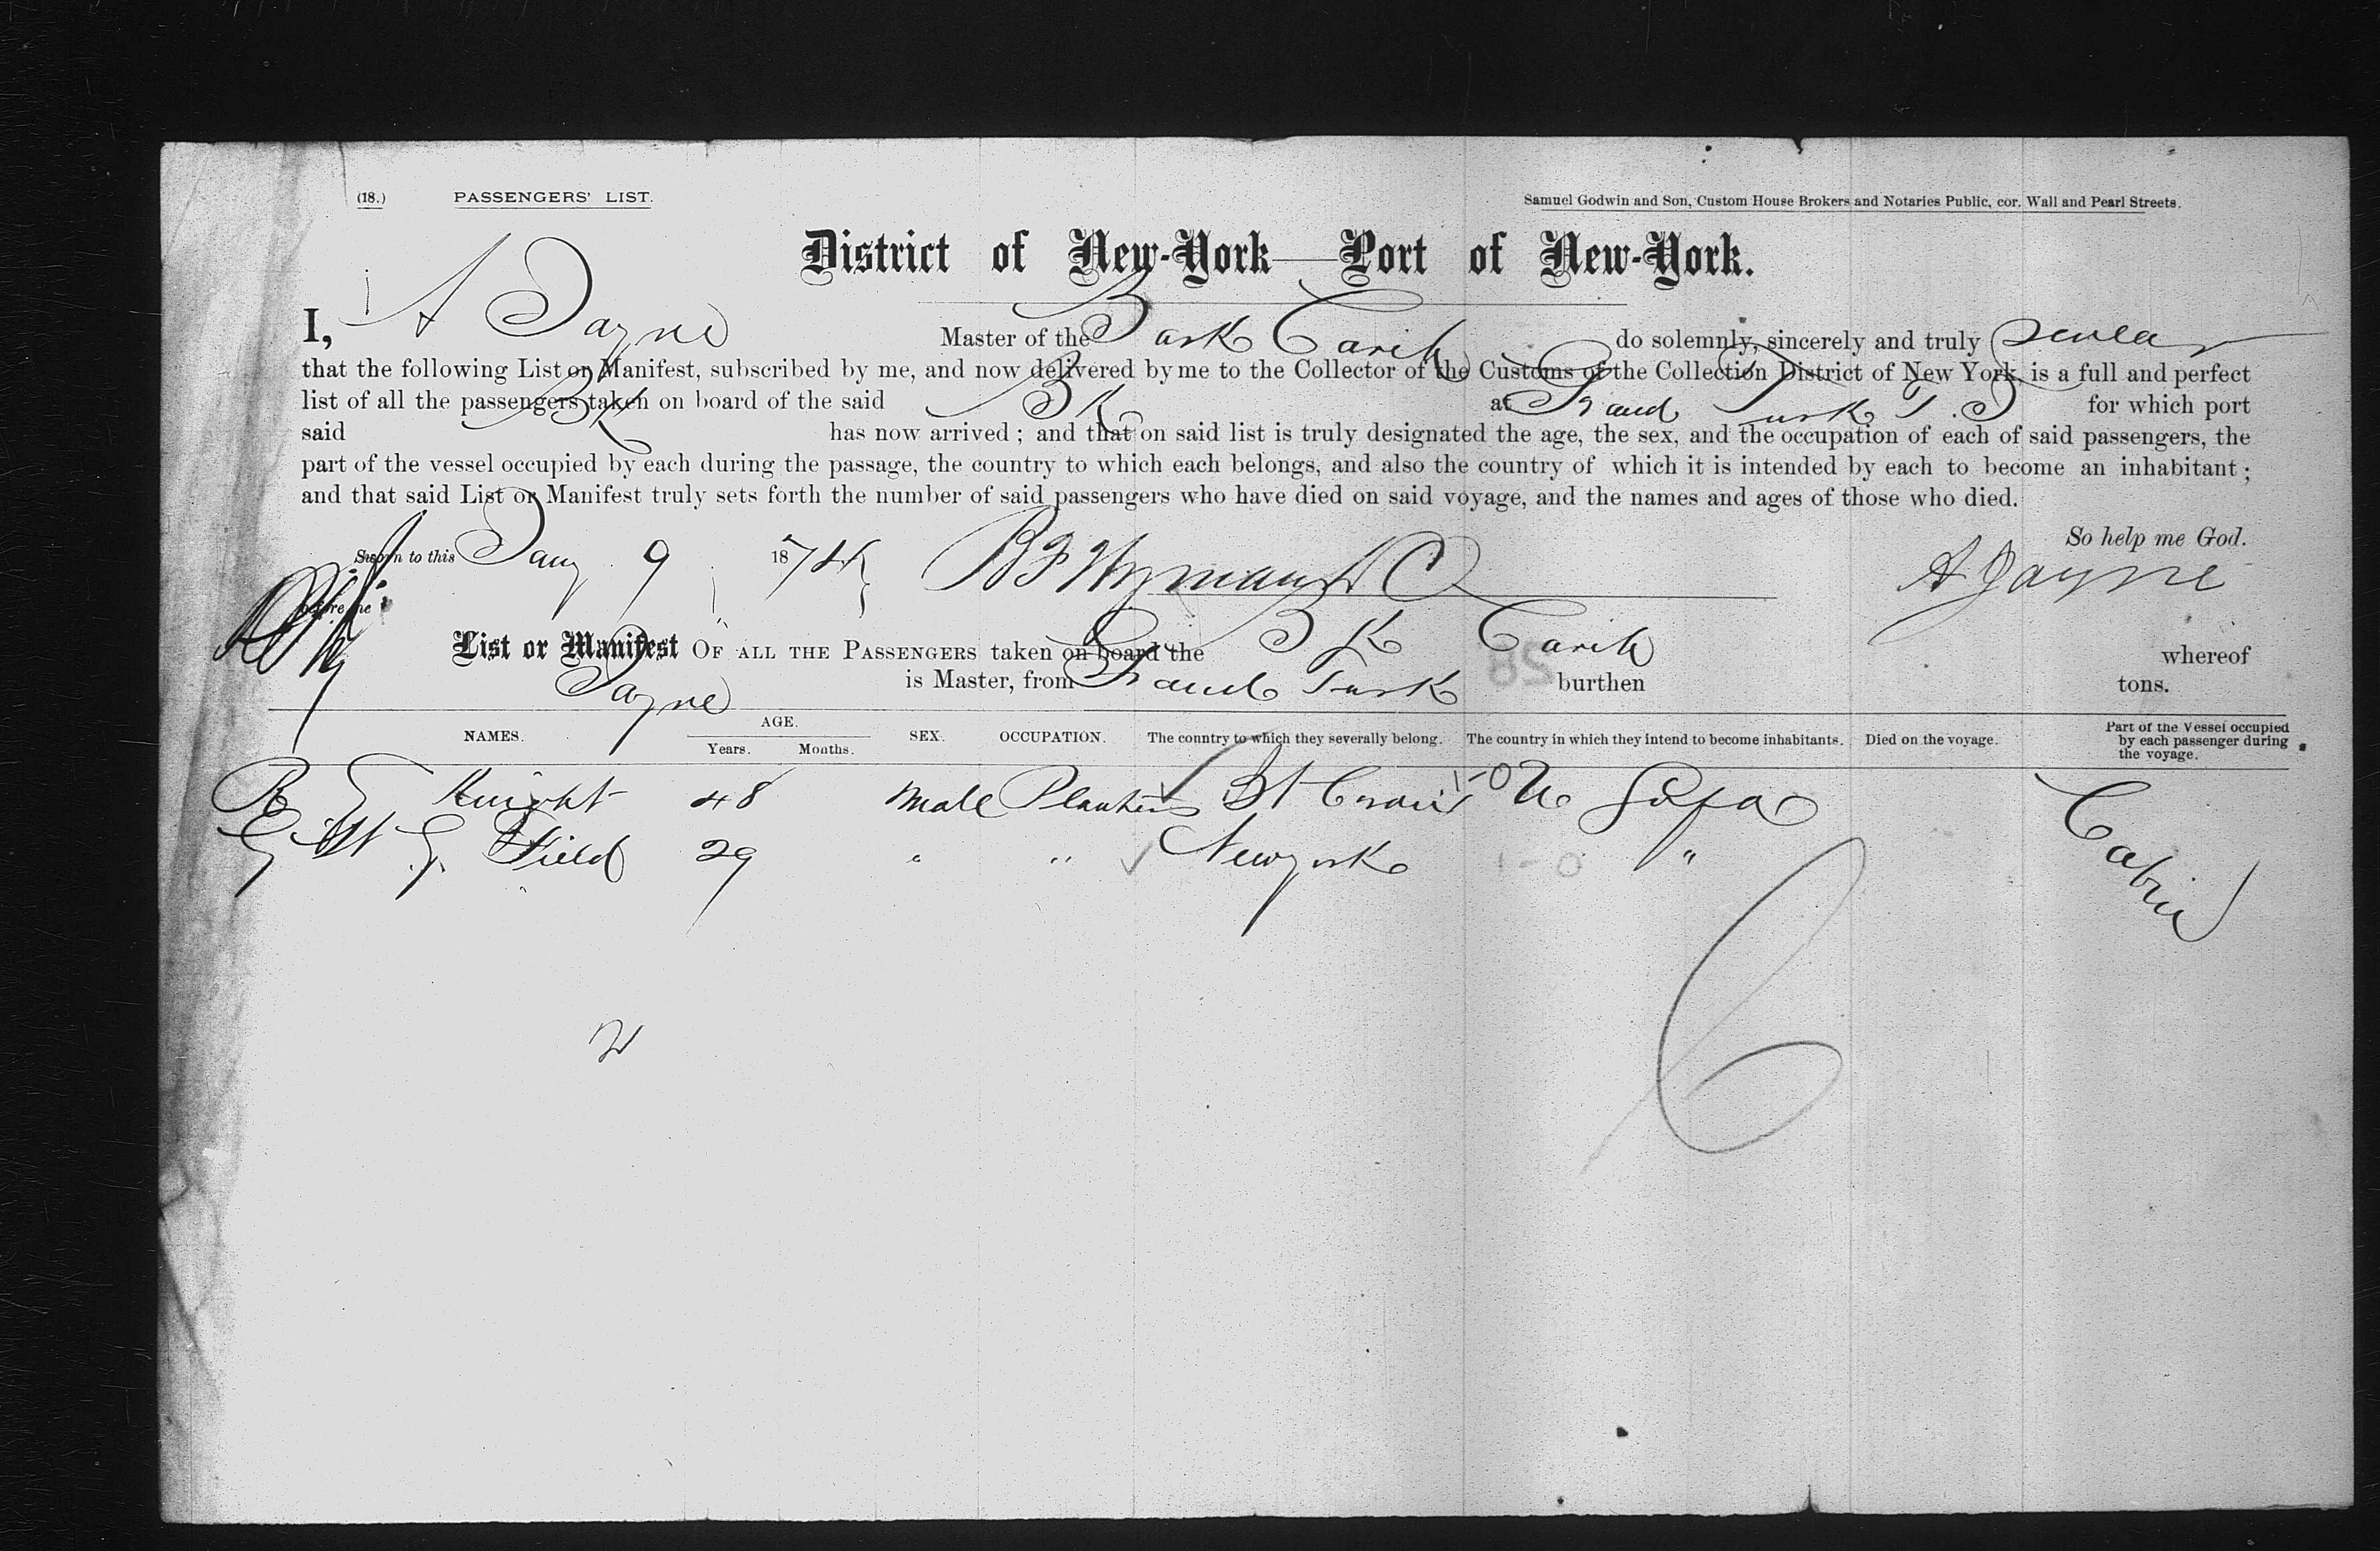 (18.) PASSENGERS' LIST. Samuel Godwin and Son, Custom House Brokers and Notaries Public, cor. Wall and Pearl Streets.
District of New-York—Port of New-York.
I, A Jayne Master of the Bark Carib do solemnly, sincerely and truly swear
that the following List or Manifest, subscribed by me, and now delivered by me to the Collector of the Customs of the Collection District of New York, is a full and perfect
list of all the passengers taken on board of the said Bk at Grand Turk T. I for which port
said Bk has now arrived; and that on said list is truly designated the age, the sex, and the occupation of each of said passengers, the
part of the vessel occupied by each during the passage, the country to which each belongs, and also the country of which it is intended by each to become an inhabitant;
and that said List or Manifest truly sets forth the number of said passengers who have died on said voyage, and the names and ages of those who died.
So help me God.
Sworn to this Jany 9 1874 B F Wyman D C A Jayne
before me
List or Manifest OF ALL THE PASSENGERS taken on board the Bk Carib whereof
Jayne is Master, from Grand Turk 58 burthen tons.
NAMES. AGE. Years. Months. SEX. OCCUPATION. The country to which they severally belong. The country in which they intend to become inhabitants. Died on the voyage. Part of the Vessel occupied by each passenger during the voyage.
R E Knight 48 Male Planters St Croix 1-0 U S of a Cabin
G. Field 29 " " New york 1-0 "
2